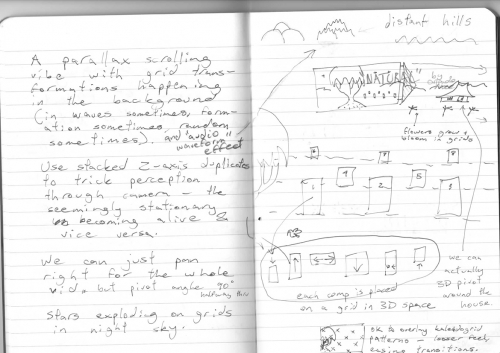 A parallax scrolling
vibe with grid trans-
formations happening
in the background
(in waves sometimes, form-
ation sometimes, random
sometimes). and "audio
waveform"
effect
Use stacked Z-axis duplicates
to trick perception
through camera - the
seemingly stationary
becoming alive &
vice versa.
We can just pan
right for the whole
vid, but pivot angle 90°
halfway thru
Stars exploding on grids
in night sky.
distant hills
"NATURAL"
flowers grow &
bloom in grids
1
2
each comp is placed
on a grid in 3D space
we can
actually
3D pivot
around the
house
OK to overlay kaleidogrid
patterns - looser feel,
easing transitions.